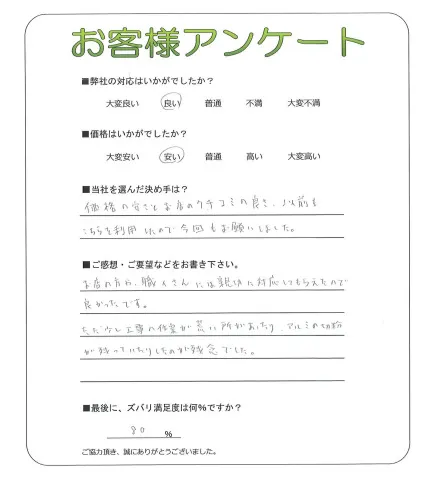 お客様アンケート
■弊社の対応はいかがでしたか？
大変良い 良い 普通 不満 大変不満
■価格はいかがでしたか？
大変安い 安い 普通 高い 大変高い
■当社を選んだ決め手は？
価格の安さとお店のクチコミの良さ、以前も
こちらを利用したので今回もお願いしました。
■ご感想・ご要望などをお書き下さい。
お店の方や、職人さんには親切に対応してもらえたので
良かったです。
ただ少し工事の作業が荒い所があったり、アルミの切粉
が残っていたりしたのが残念でした。
■最後に、ズバリ満足度は何%ですか？
80 %
ご協力頂き、誠にありがとうございました。